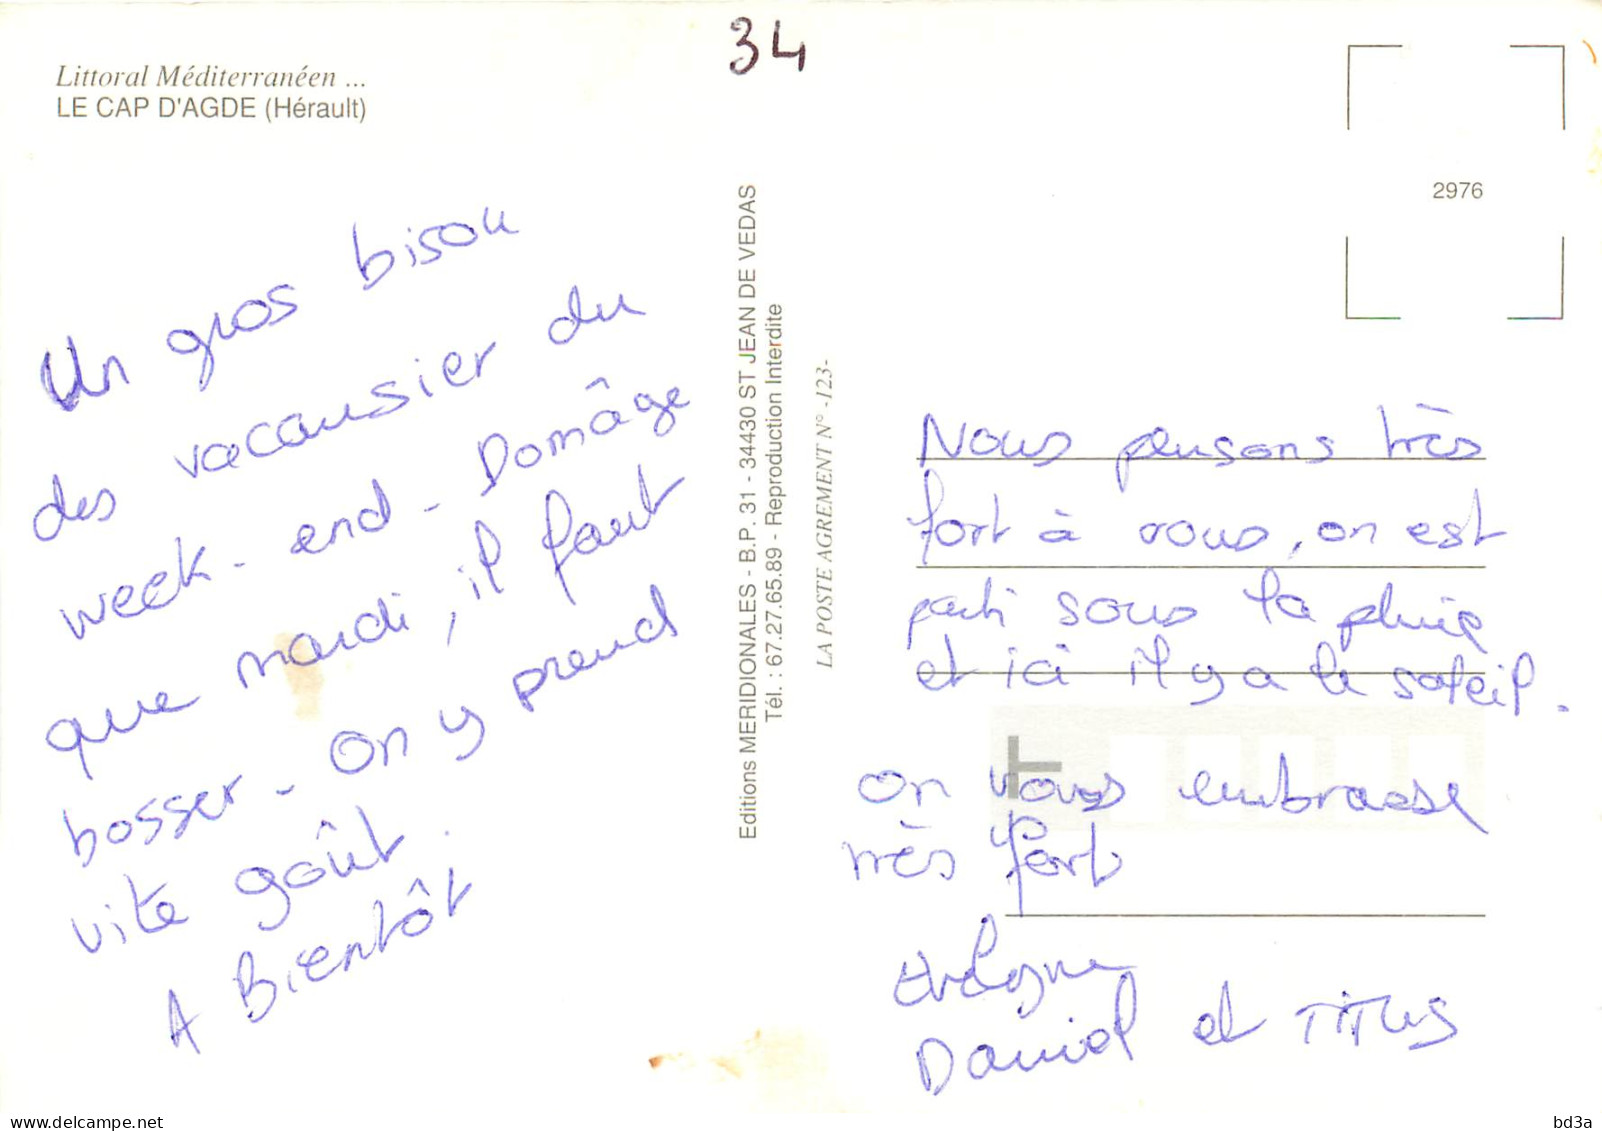 34
Littoral Méditerranéen ...
LE CAP D'AGDE (Hérault)
2976
Un gros bisou
des vacansier du
week-end - Domâge
que mardi, il faut
bosser - On y prend
vite goût.
A Bientôt
Editions MERIDIONALES - B.P. 31 - 34430 ST JEAN DE VEDAS
Tél. : 67.27.65.89 - Reproduction Interdite
LA POSTE AGREMENT N° -123-
Nous pensons très
fort à vous, on est
parti sous la pluie
et ici il y a le soleil.
On vous embrasse
très fort
Daniel et TITUS
delcampe.net
bd3a